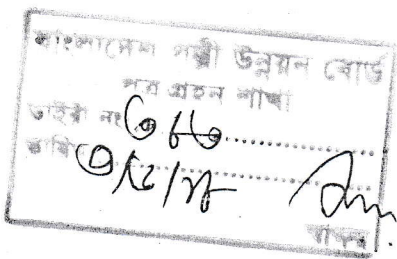 বাংলাদেশ পল্লী উন্নয়ন বোর্ড
পত্র গ্রহন শাখা
ডাইরী নং ৩৮৩
তারিখ
স্বাক্ষর